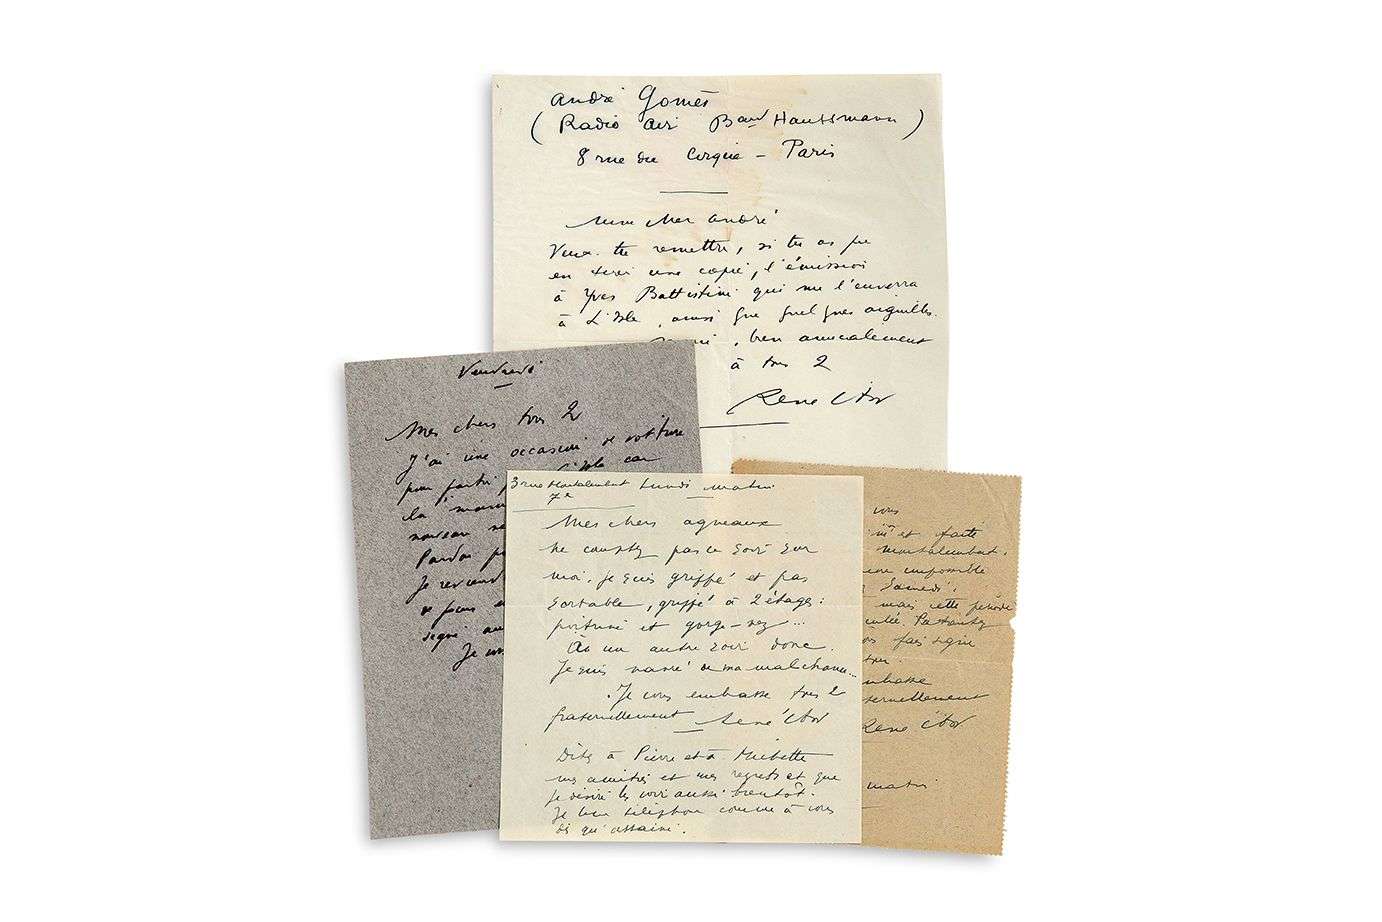 André Gomès
( Radio Air Bard Haussmann )
8 rue du Cirque - Paris
Mon cher André
Veux-tu remettre, si tu as pu
en tirer une copie, l'émission
à Yves Battistini qui me l'enverra
à L'Isle, ainsi que quelques aiguilles.
, bien amicalement
à tous 2
René Char
Vendredi
Mes chers tous 2
J'ai une occasion de voiture
pour partir L'Isle car
la
nouveau
Pardon
Je reviend
Je
3 rue Montalembert Lundi matin
7e
Mes chers agneaux
Ne comptez pas ce soir sur
moi. Je suis grippé et pas
sortable, grippé à 2 étages :
poitrine et gorge-nez...
À un autre soir donc.
Je suis navré de ma malchance...
Je vous embrasse tous 2
fraternellement René Char
Dites à Pierre et à Michette
mes amitiés et mes regrets et que
je désire les voir aussi bientôt.
Je leur téléphone comme à vous
dès qu'assaini.
vous
et faite
Montalembert.
impossible
Samedi.
mais cette période
fais signe
embrasse
fraternellement
René Char
matin